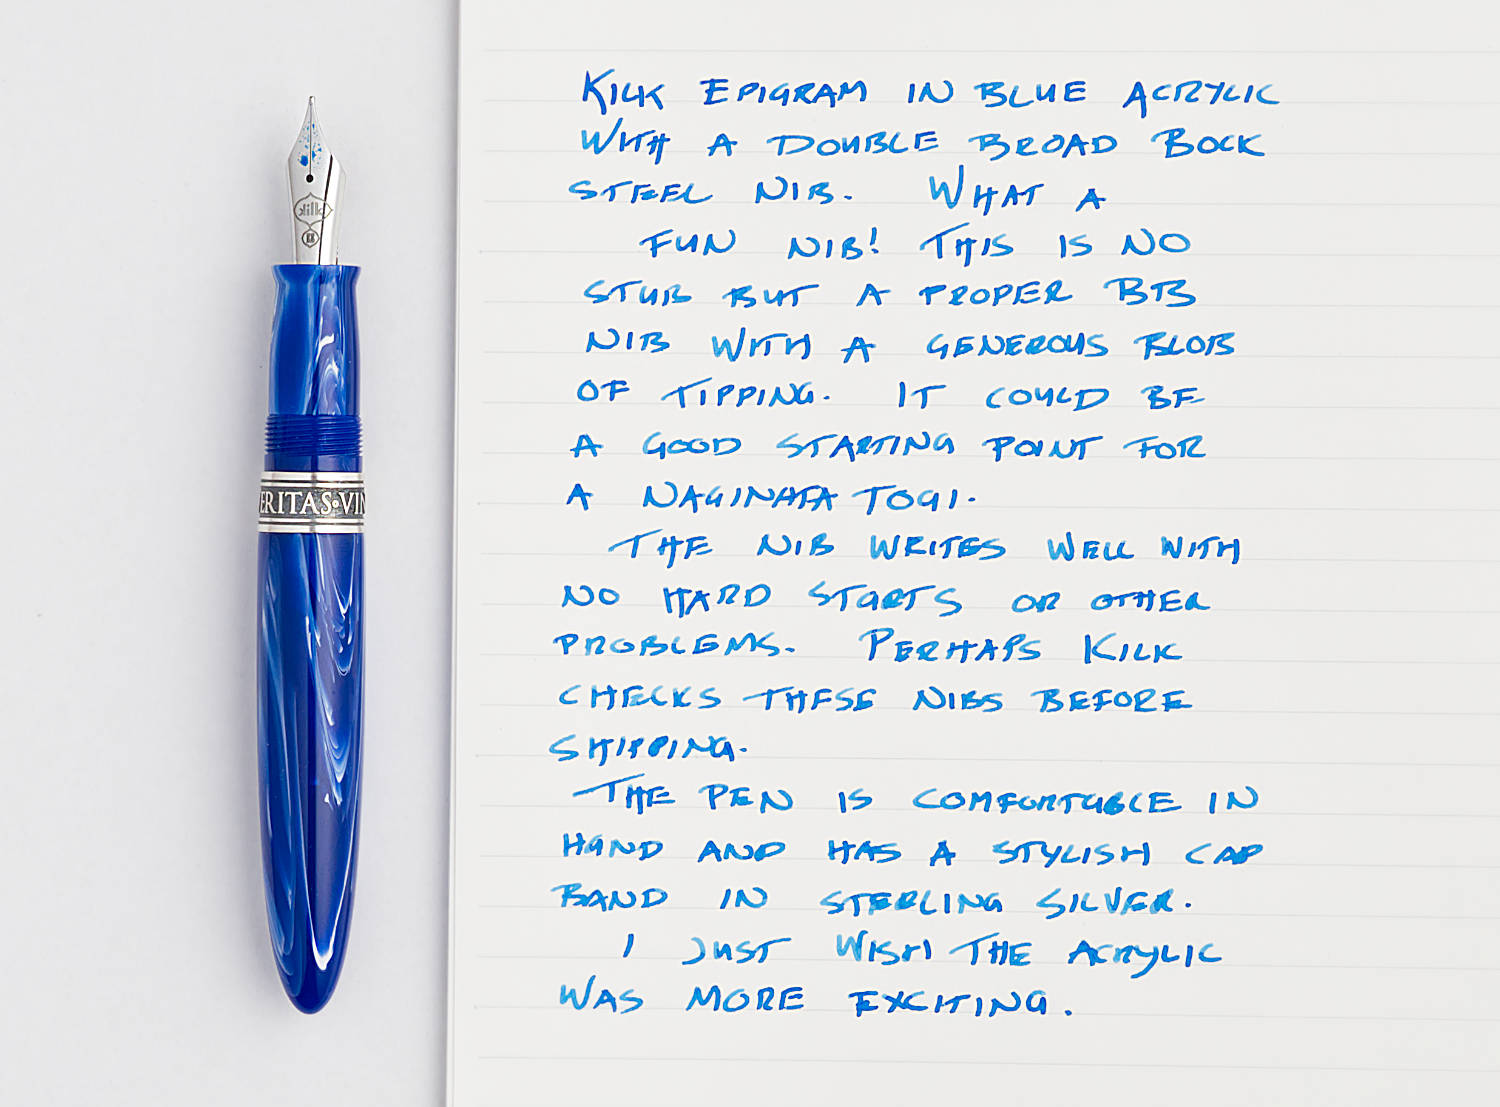 kilk
BB
ERITAS·VIN
KILK EPIGRAM IN BLUE ACRYLIC
WITH A DOUBLE BROAD BOCK
STEEL NIB. WHAT A
FUN NIB! THIS IS NO
STUB BUT A PROPER BB
NIB WITH A GENEROUS BLOB
OF TIPPING. IT COULD BE
A GOOD STARTING POINT FOR
A NAGINATA TOGI.
THE NIB WRITES WELL WITH
NO HARD STARTS OR OTHER
PROBLEMS. PERHAPS KILK
CHECKS THESE NIBS BEFORE
SHIPPING.
THE PEN IS COMFORTABLE IN
HAND AND HAS A STYLISH CAP
BAND IN STERLING SILVER.
I JUST WISH THE ACRYLIC
WAS MORE EXCITING.